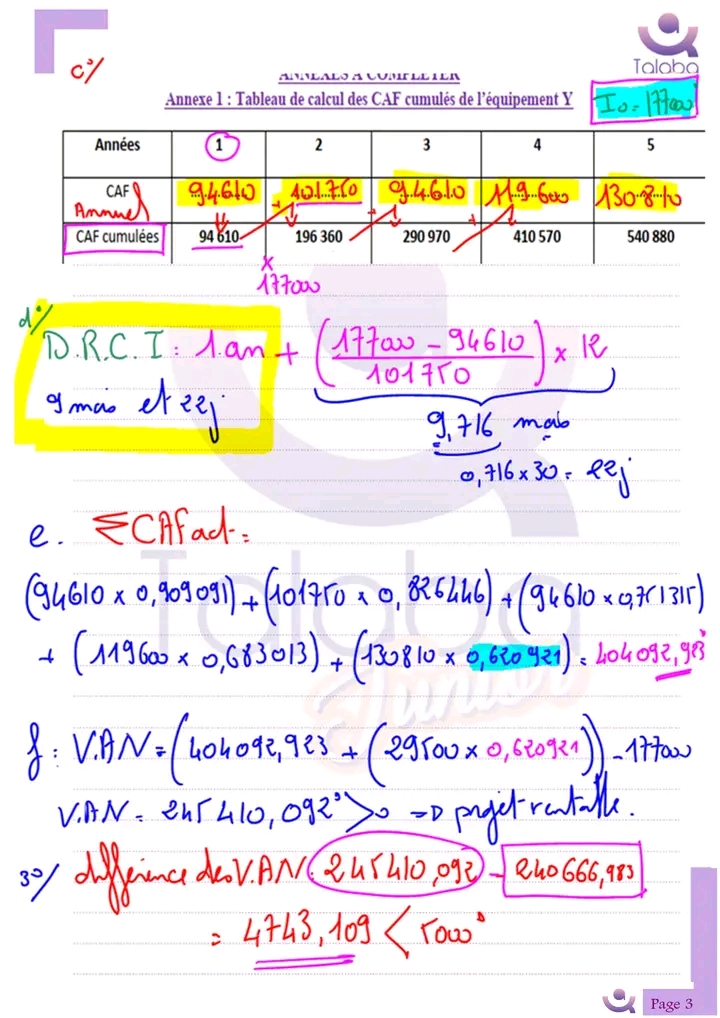 c°/
Talaba
ANNEXES A COMPLETER
Annexe 1 : Tableau de calcul des CAF cumulés de l'équipement Y
I0 = 177000
Années 1 2 3 4 5
CAF 94610 101750 94610 119600 130810
Annuel
CAF cumulées 94 610 196 360 290 970 410 570 540 880
x
177000
d°/
D.R.C.I : 1.an + (177000 - 94610 / 101750) x 12
9 mois et 22j
9,716 mois
0,716 x 30 = 22j
e. ΣCAFact =
(94610 x 0,909091) + (101750 x 0,826446) + (94610 x 0,751315)
+ (119600 x 0,683013) + (130810 x 0,620921) = 404092,923
Talaba
Junior
f : V.AN = (404092,923 + (29500 x 0,620921)) - 177000
V.AN = 245410,092 > 0 => projet rentable.
3°/ différence des V.AN : 245410,092 - 240666,983
= 4743,109 < 5000
Page 3